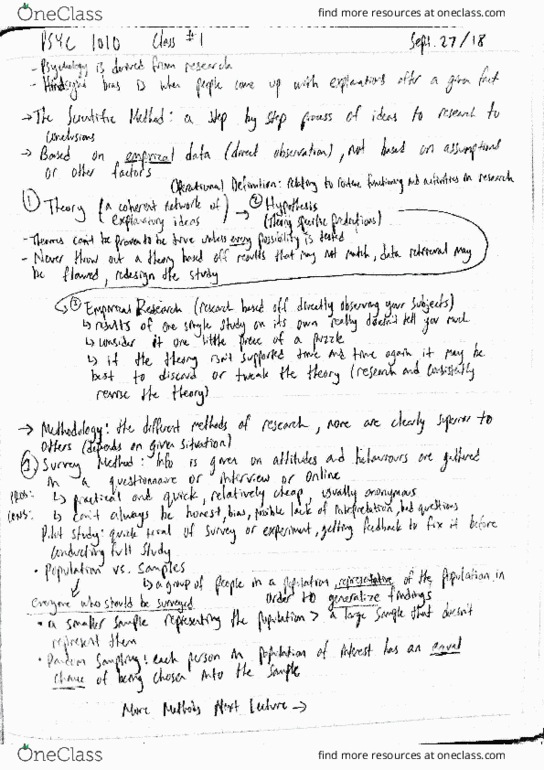 OneClass
find more resources at oneclass.com
PSYC 1010 Class #1 Sept. 27/18
- Psychology is derived from research
- Hindsight bias is when people come up with explanations after a given fact
→ The Scientific Method: a step by step process of ideas to research to
conclusions
→ Based on empirical data (direct observation), not based on assumptions
or other factors
Operational Definition: relating to routine functioning and activities in research
① Theory (a coherent network of explanatory ideas) → ② Hypothesis (theory specific predictions)
- Theories can't be proven to be true unless every possibility is tested
- Never throw out a theory based off results that may not match, data retrieval may
be flawed, redesign the study
③ Empirical Research (research based off directly observing your subjects)
↳ results of one single study on its own really doesn't tell you much
↳ consider it one little piece of a puzzle
↳ if the theory isn't supported time and time again it may be
best to discard or tweak the theory (research and consistently
revise the theory)
→ Methodology: the different methods of research, none are clearly superior to
others (depends on given situation)
① Survey Method: Info is given on attitudes and behaviours are gathered
in a questionnaire or interview or online
PROS: ↳ practical and quick, relatively cheap, usually anonymous
CONS: ↳ can't always be honest, bias, possible lack of interpretation, bad questions
Pilot study: quick trial of survey or experiment, getting feedback to fix it before
conducting full study
• Population vs. Samples
↳ a group of people in a population, representative of the population in
order to generalize findings
everyone who should be surveyed
• a smaller sample representing the population > a large sample that doesn't
represent them
• Random Sampling: each person in population of interest has an equal
chance of being chosen into the sample
More Methods Next Lecture →
OneClass
find more resources at oneclass.com